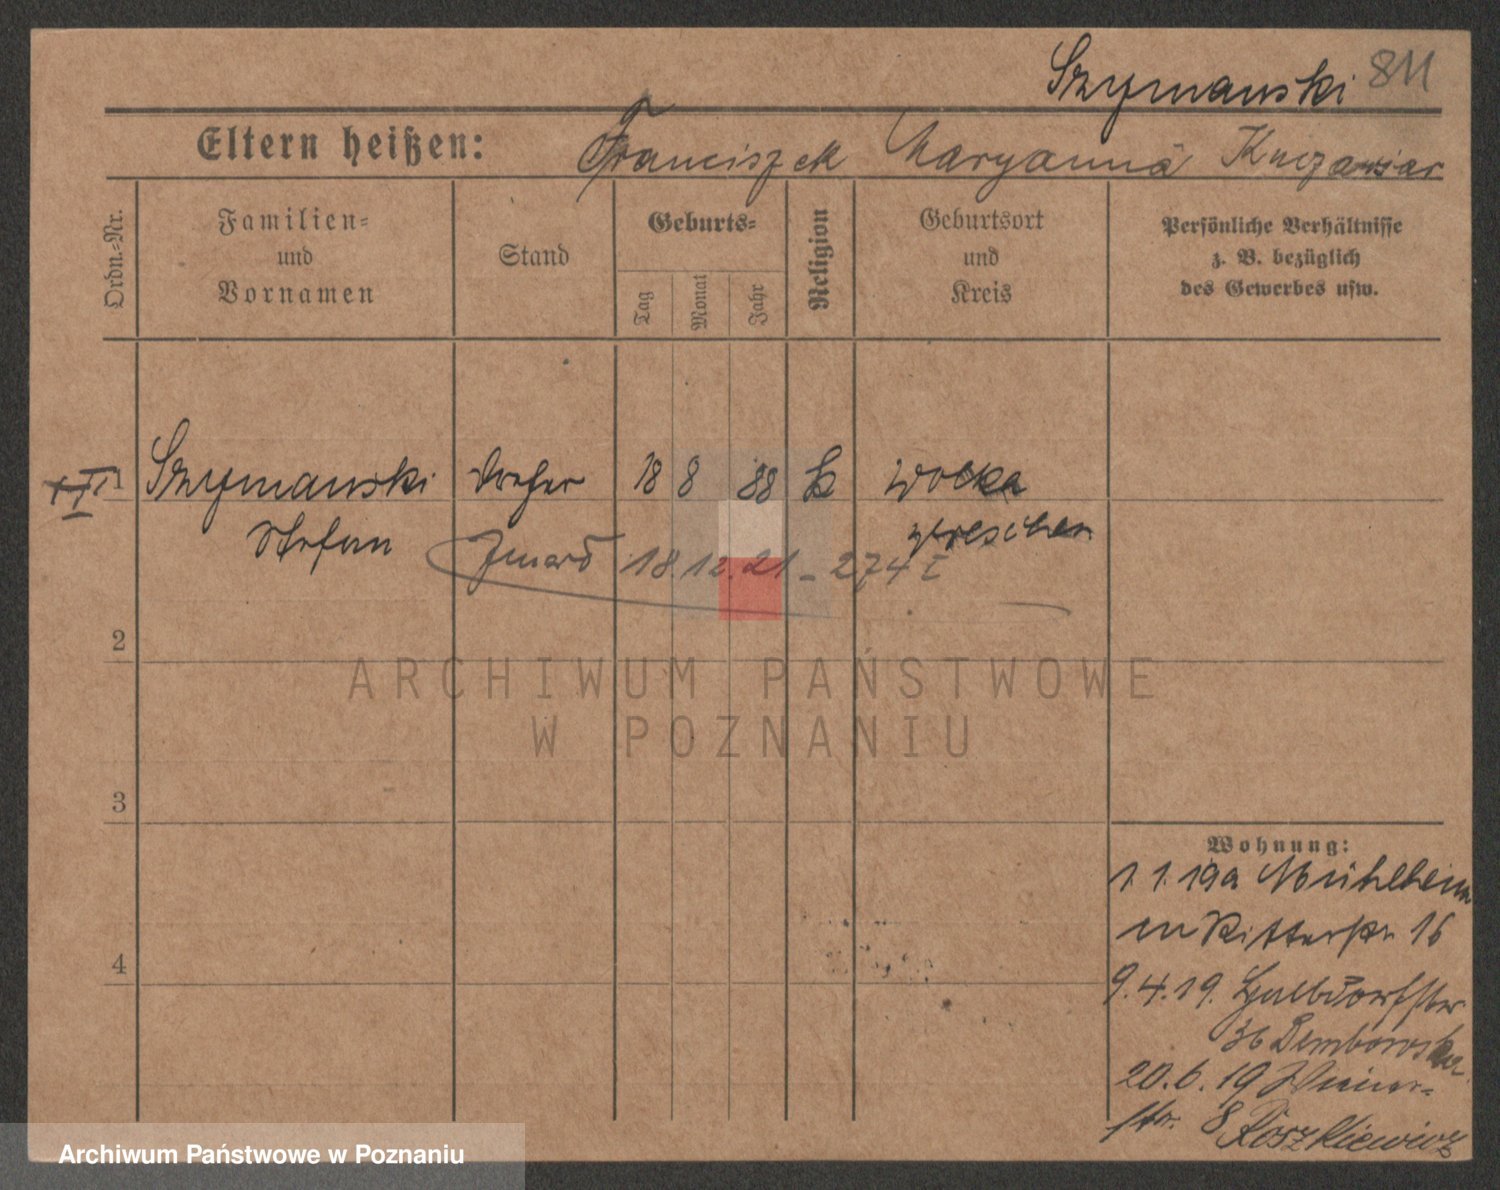 Szymanski 811
Eltern heißen: Franciszek Maryanna
Ordn.-Nr.
Familien-
und
Vornamen
Stand
Geburts-
Tag
Monat
Jahr
Religion
Geburtsort
und
Kreis
Persönliche Verhältnisse
z. B. bezüglich
des Gewerbes usw.
1 Szymanski Dreher 18 8 88 k Wolka
Stefan Wreschen
18.12.21 - 274 I
2
ARCHIWUM PAŃSTWOWE
W POZNANIU
3
Wohnung:
1.1.19 a Mühlheim
Ritterstr 16
4
9.4.19. Halbdorfstr.
36 Dembowska
20.6.19 Wiener-
str. 8 Roszkiewicz
Archiwum Państwowe w Poznaniu